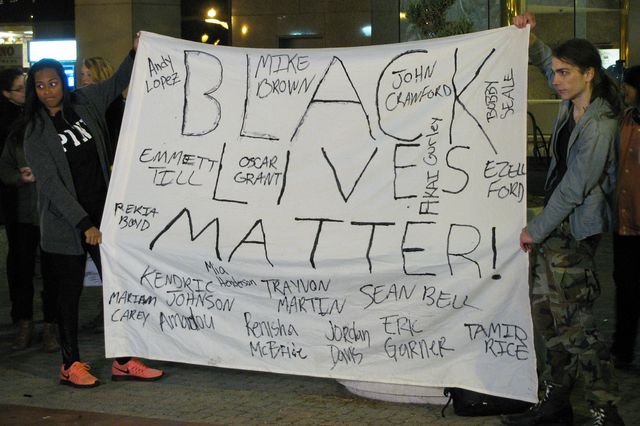 BLACK
LIVES
MATTER!
ANDY
LOPEZ
MIKE
BROWN
JOHN
CRAWFORD
BOBBY
SEALE
EMMETT
TILL
OSCAR
GRANT
Gurley
EZELL
FORD
REKIA
BOYD
KENDRIC
JOHNSON
Mia
Henderson
TRAYVON
MARTIN
SEAN BELL
MARIAM
CAREY
Amadou
Renisha
McBride
Jordan
Davis
ERIC
GARNER
TAMIR
RICE
PIN